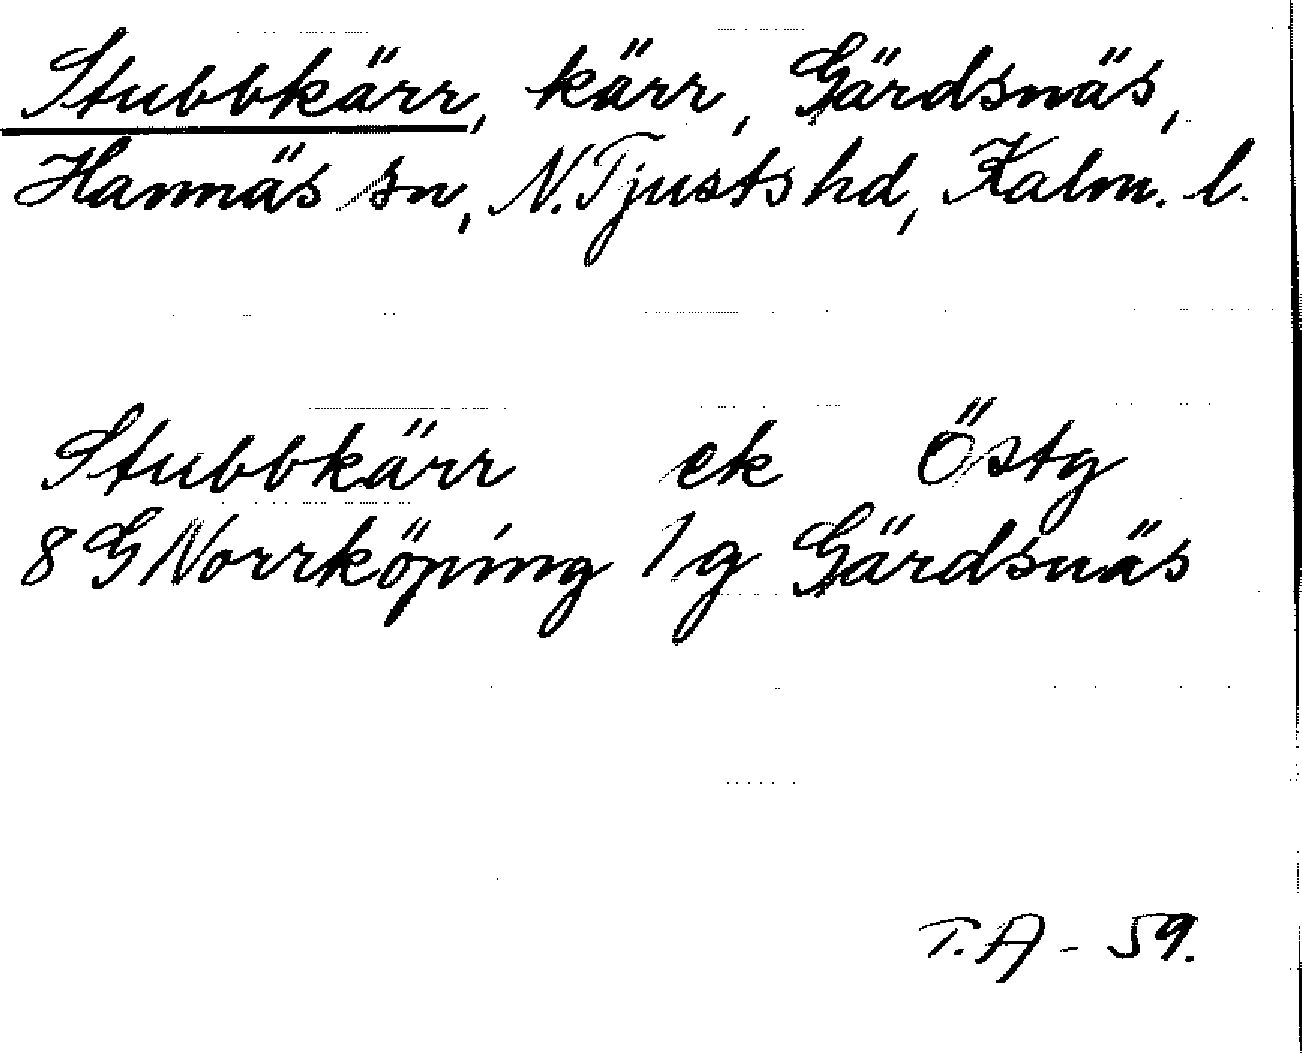 Stubbkärr, kärr, Gärdsnäs,
Hannäs sn, N. Tjusts hd, Kalm. l.
Stubbkärr ek Östg
8 G Norrköping 1 g Gärdsnäs
T.A - 59.